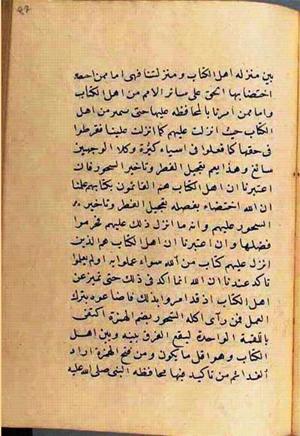 ٩٧
بين منزله اهل الكتاب ومنزلتنا فهى اما ممن
اختصنا بها الحق على سائر الامم من اهل الكتاب
واما ممن امرنا بالمحافظه عليها حتى من اهل
الكتاب حيث انزلت عليهم كما انزلت علينا ففرطوا
فى حقها كما فعلوا فى اشياء كثيرة وكلا الوجهين
سائغ وهذا يعم تعجيل الفطر وتاخير السحور فان
اعتبرنا ان اهل الكتاب هم القائلون بكتابهم علمنا
ان الله اختصنا بفضله بتعجيل الفطر وتاخير
السحور عليهم وانه ما انزل ذلك عليهم فحرموا
فضلها وان اعتبرنا ان اهل الكتاب هم الذين
انزل عليهم كتاب من الله سواء عملوا به او لم يعملوا
تاكد عندنا ان الله انما اكد فى ذلك حتى نتميز عن
اهل الكتاب اذ قد امروا بذلك فاضاعوه بترك
العمل فمن رآى اكله السحور بضم الهمزة اكتفى
باللقمة الواحدة ليقع الفرق بينه وبين اهل
الكتاب وهو اقل ما يكون ومن فتح الهمزة اراد
الغذا من تاكيد فيها محافظه النبى صلى الله عليه